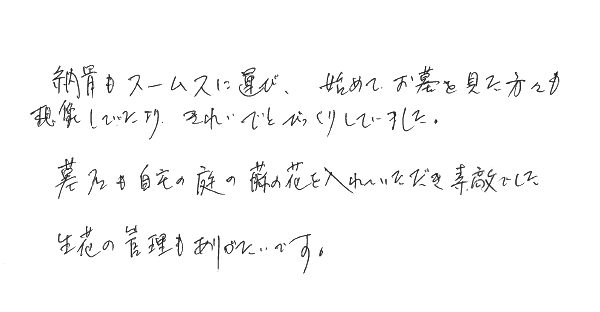 納骨もスムースに運び、始めてお墓を見た方々も
想像していたより、きれいでとびっくりしていました。
墓石も自宅の庭の藤の花を入れていただき素敵でした
生花の管理もありがたいです。